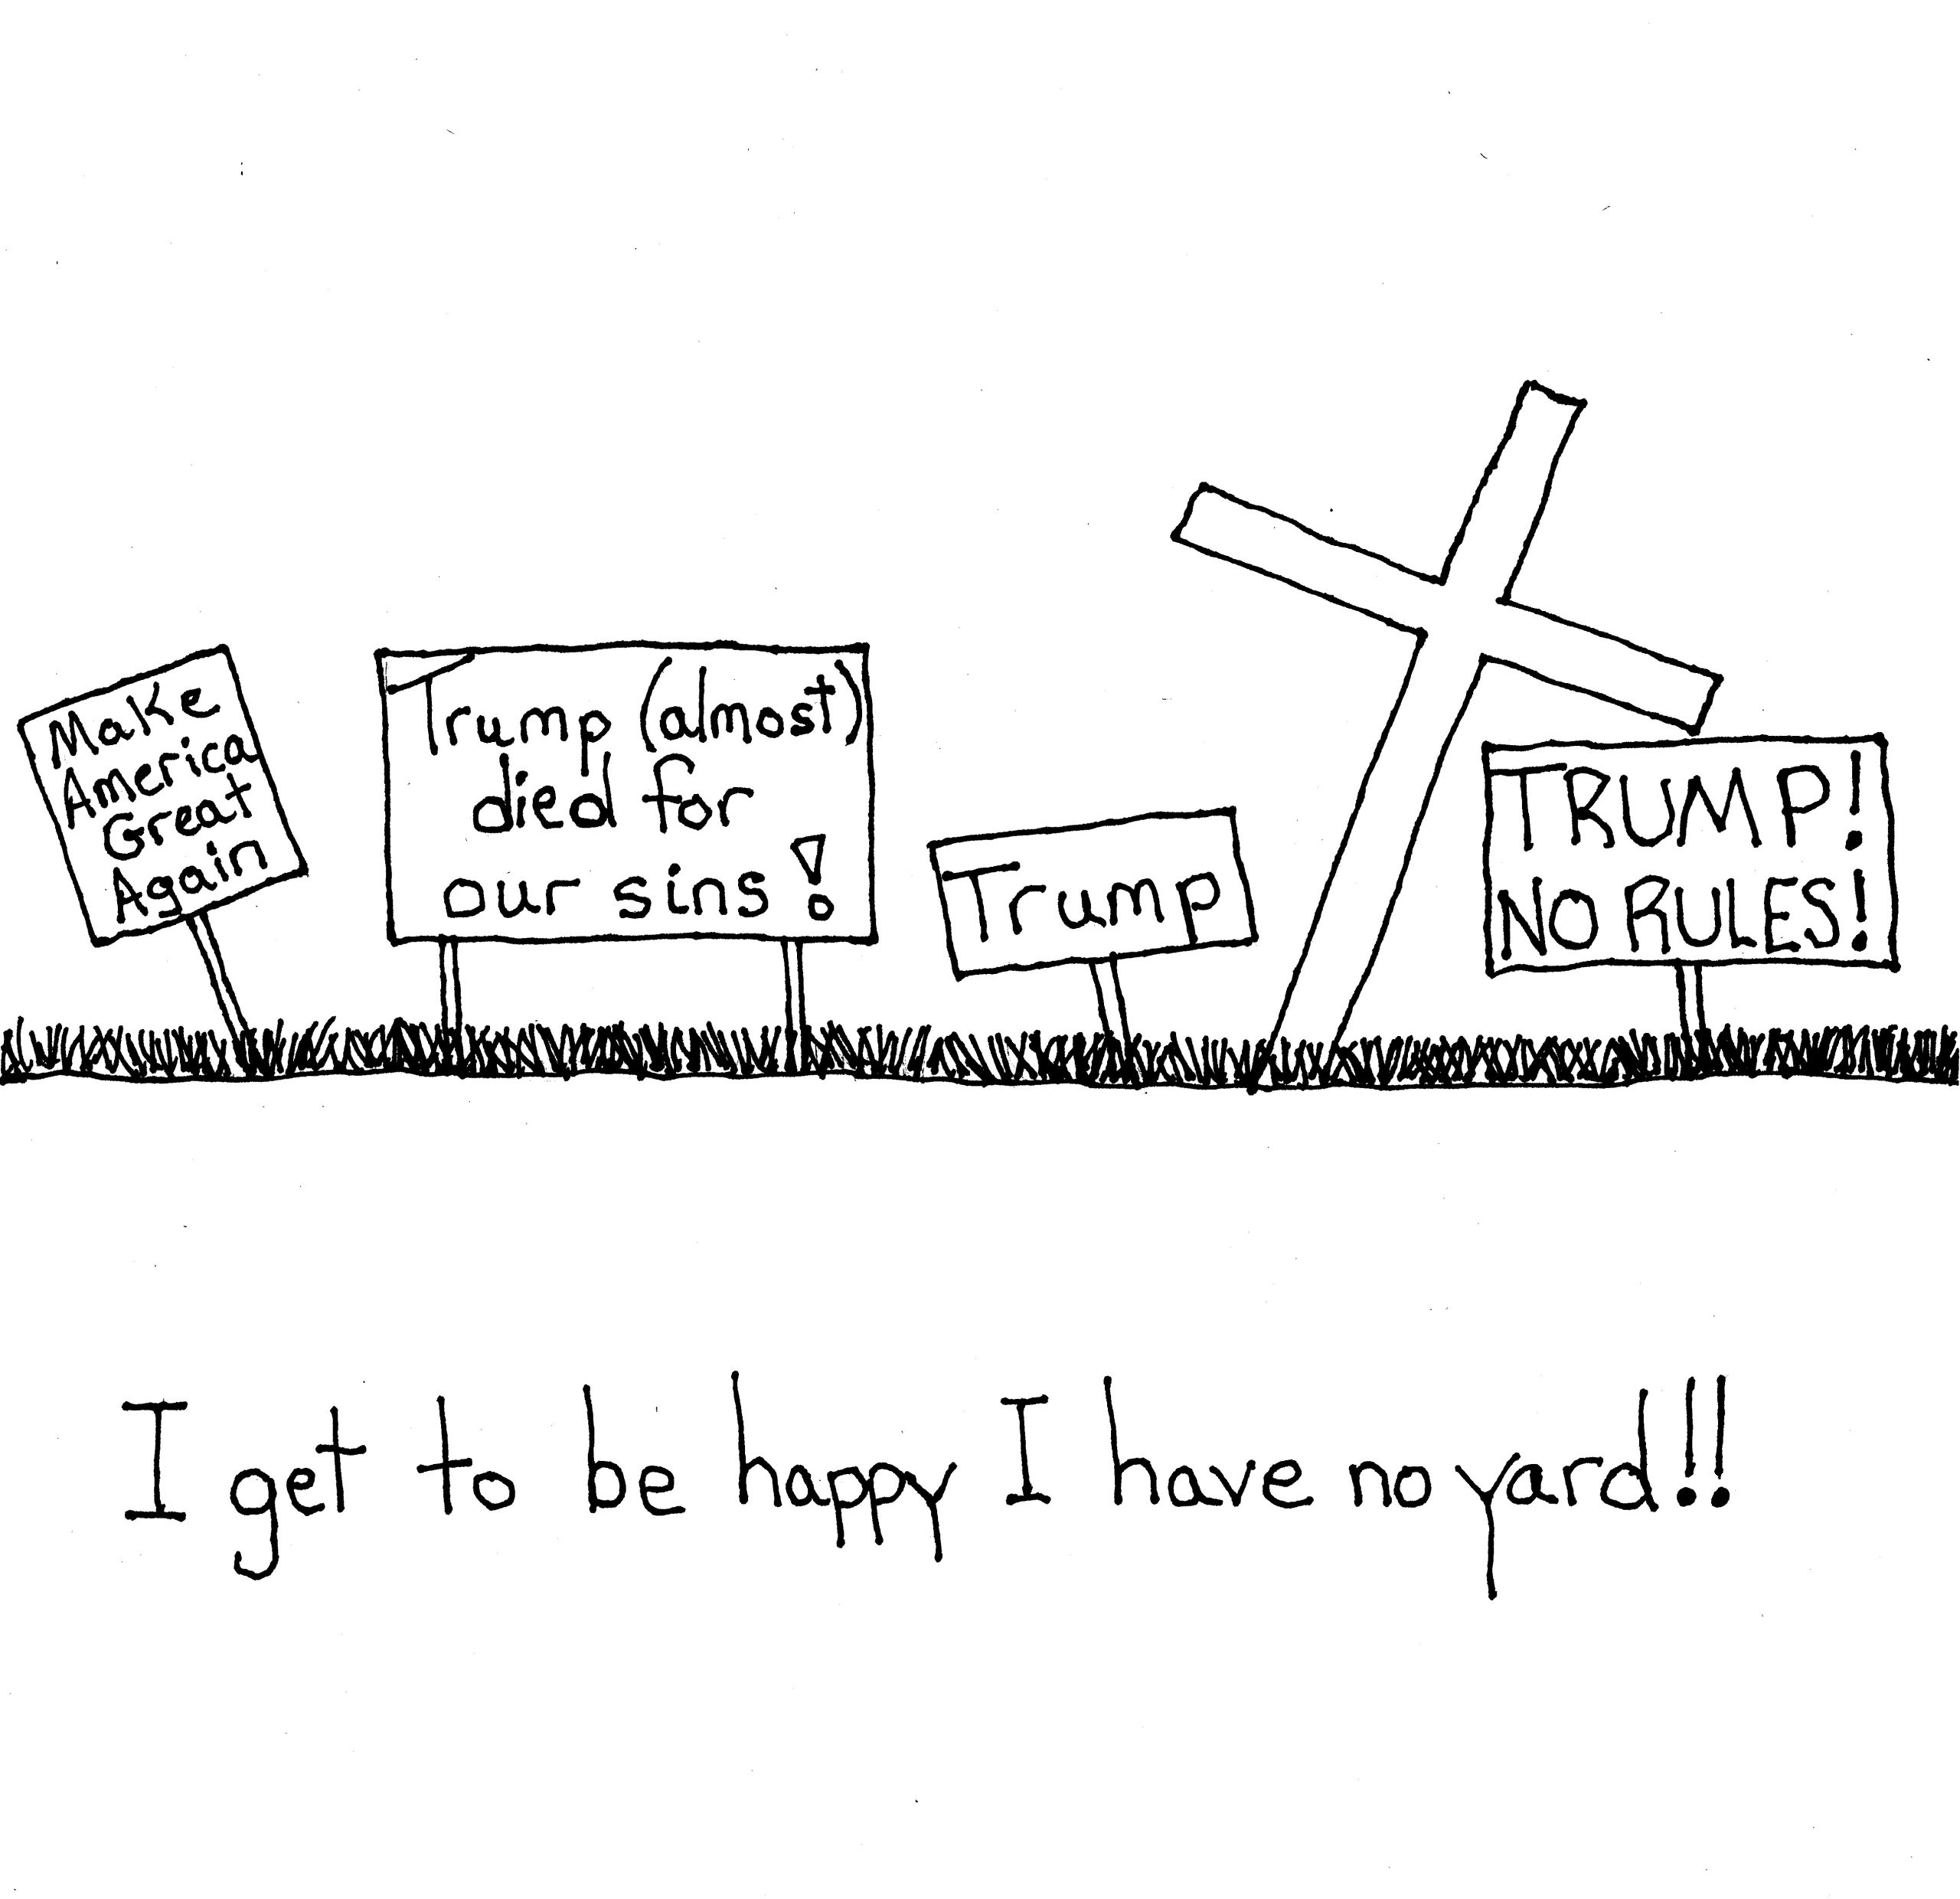 Make
America
Great
Again
Trump (almost)
died for
our sins!
Trump
TRUMP!
NO RULES!
I get to be happy I have no yard!!